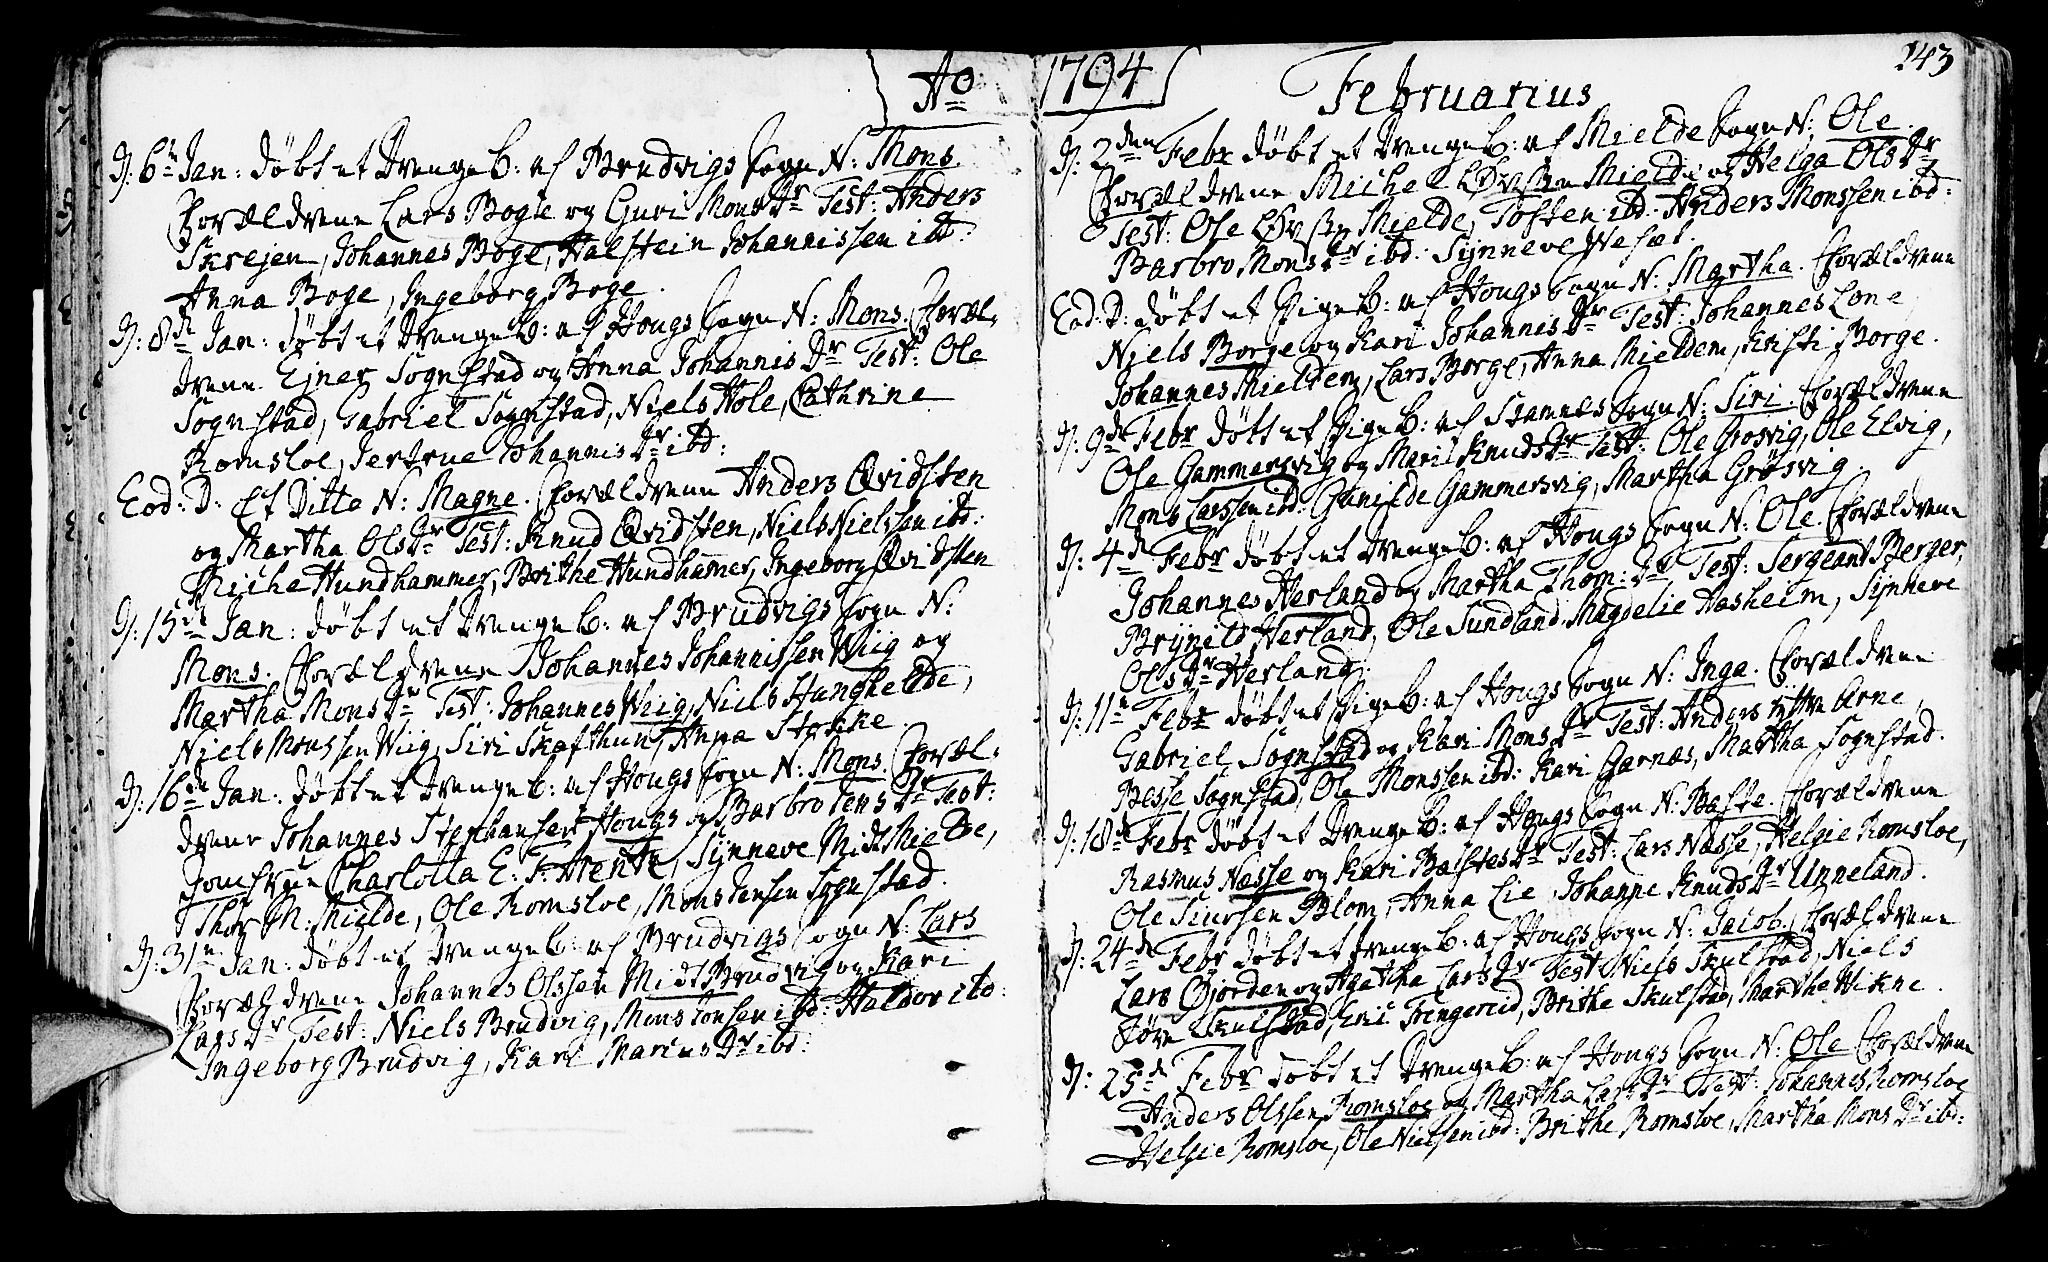 Ao
D: 6te Jan: döbt et Drengeb: af Brudvigs Sogn N: Mons.
Forældrene Lars Boge og Guri MonsDr Test: Anders
Skrejen, Johannes Boge, Halstein Johannissen ibd:
Anna Boge, Ingeborg Boge.
D: 8de Jan: döbt et Drengeb: af Hougs Sogn N: Mons. Foræl-
drene Ejner Sognstad og Anna JohannisDr Test: Ole
Sognstad, Gabriel Sognstad, Niels Hole, Cathrine
Romsloe, Jertrue JohannisDr ibd:
Eod: D: Et Ditto N: Magne. Forældrene Anders Qvidsten
og Martha OlsDr Test: Knud Qvidsten, Niels Nielssen ibd:
Miche Hundhammer, Brithe Hundhamer, Ingeborg Qvidsten
D: 15de Jan: döbt et Drengeb: af Brudvigs Sogn N:
Mons. Forældrene Johannes Johannissen Wiig og
Martha MonsDr Test: Johannes Wiig, Niels Hunghelde,
Niels Monssen Wiig, Siri Skafthun, Anna Stokke.
D: 16de Jan: döbt et Drengeb: af Hougs Sogn N: Mons. Foræl-
drene Johannes Stephansen Hougs og Barbro JensDr Test:
Jomfrue Charlotta E: F: Hentz, Synneve Midtmielde,
Thor M: Mielde, Ole Romsloe, Mons Jensen Sognstad.
D: 31te Jan: döbt et Drengeb: af Brudvigs Sogn N: Lars
Forældrene Johannes Olssen MidtBrudvig og Kari
LarsDr Test: Niels Brudvig, Mons Jonsen ibd: Haldor ibd:
Ingeborg Brudvig, Kari MariusDr ibd:
1794
Februarius
143
D: 2den Febr döbt et Drengeb: af Mielde Sogn N: Ole.
Forældrene Michel Mielde og Helga OlsDr
Test: Ole Mielde, Tosten ibd: Anders Monssen ibd:
Barbro MonsDr ibd: Synneve Wesæt.
Eod: D: döbt et Pigeb: af Hougs Sogn N: Martha. Forældrene
Niels Borge og Kari JohannisDr Test: Johannes Lone,
Johannes Mieldem, Lars Borge, Anna Mieldem, Kristi Borge.
D: 9de Febr döbt et Pigeb: af Stamnes Sogn N: Siri. Forældrene
Ole Gammersvig og Marit KnudsDr Test: Ole Grosvig, Ole Elvig,
Mons Larssen ibd: Gunilde Gammersvig, Martha Grøsvig.
D: 4de Febr döbt et Drengeb: af Hougs Sogn N: Ole. Forældrene
Johannes Herland og Martha Thom:Dr Test: Sergeant Berger,
Brynild Herland, Ole Sundland, Magdelie Aasheim, Synneve
OlsDr Herland.
D: 11te Febr döbt et Pigeb: af Hougs Sogn N: Inga. Forældrene
Gabriel Sognstad og Kari MonsDr Test: Anders Arne,
Besse Sognstad, Ole Monssen ibd: Kari Garnæs, Martha Sognstad.
D: 18de Febr döbt et Drengeb: af Hougs Sogn N: Baste. Forældrene
Rasmus Næsse og Kari BastesDr Test: Lars Næsse, Helgie Romsloe,
Ole Siursen Blom, Anna Lie, Johanne KnudsDr Unneland.
D: 24de Febr döbt et Drengeb: af Hougs Sogn N: Jacob. Forældrene
Lars Gjorden og Agatha LarsDr Test Niels Skulstad, Niels
Töre Skulstad, Eric Trengereid, Brithe Skulstad, Marthe Hikne.
D: 25de Febr döbt et Drengeb: af Hougs Sogn N: Ole Forældrene
Anders Olssen Romsloe og Martha LarsDr Test: Johannes Romsloe
Helgie Romsloe, Ole Nielsen ibd: Brithe Romsloe, Martha MonsDr ibd: